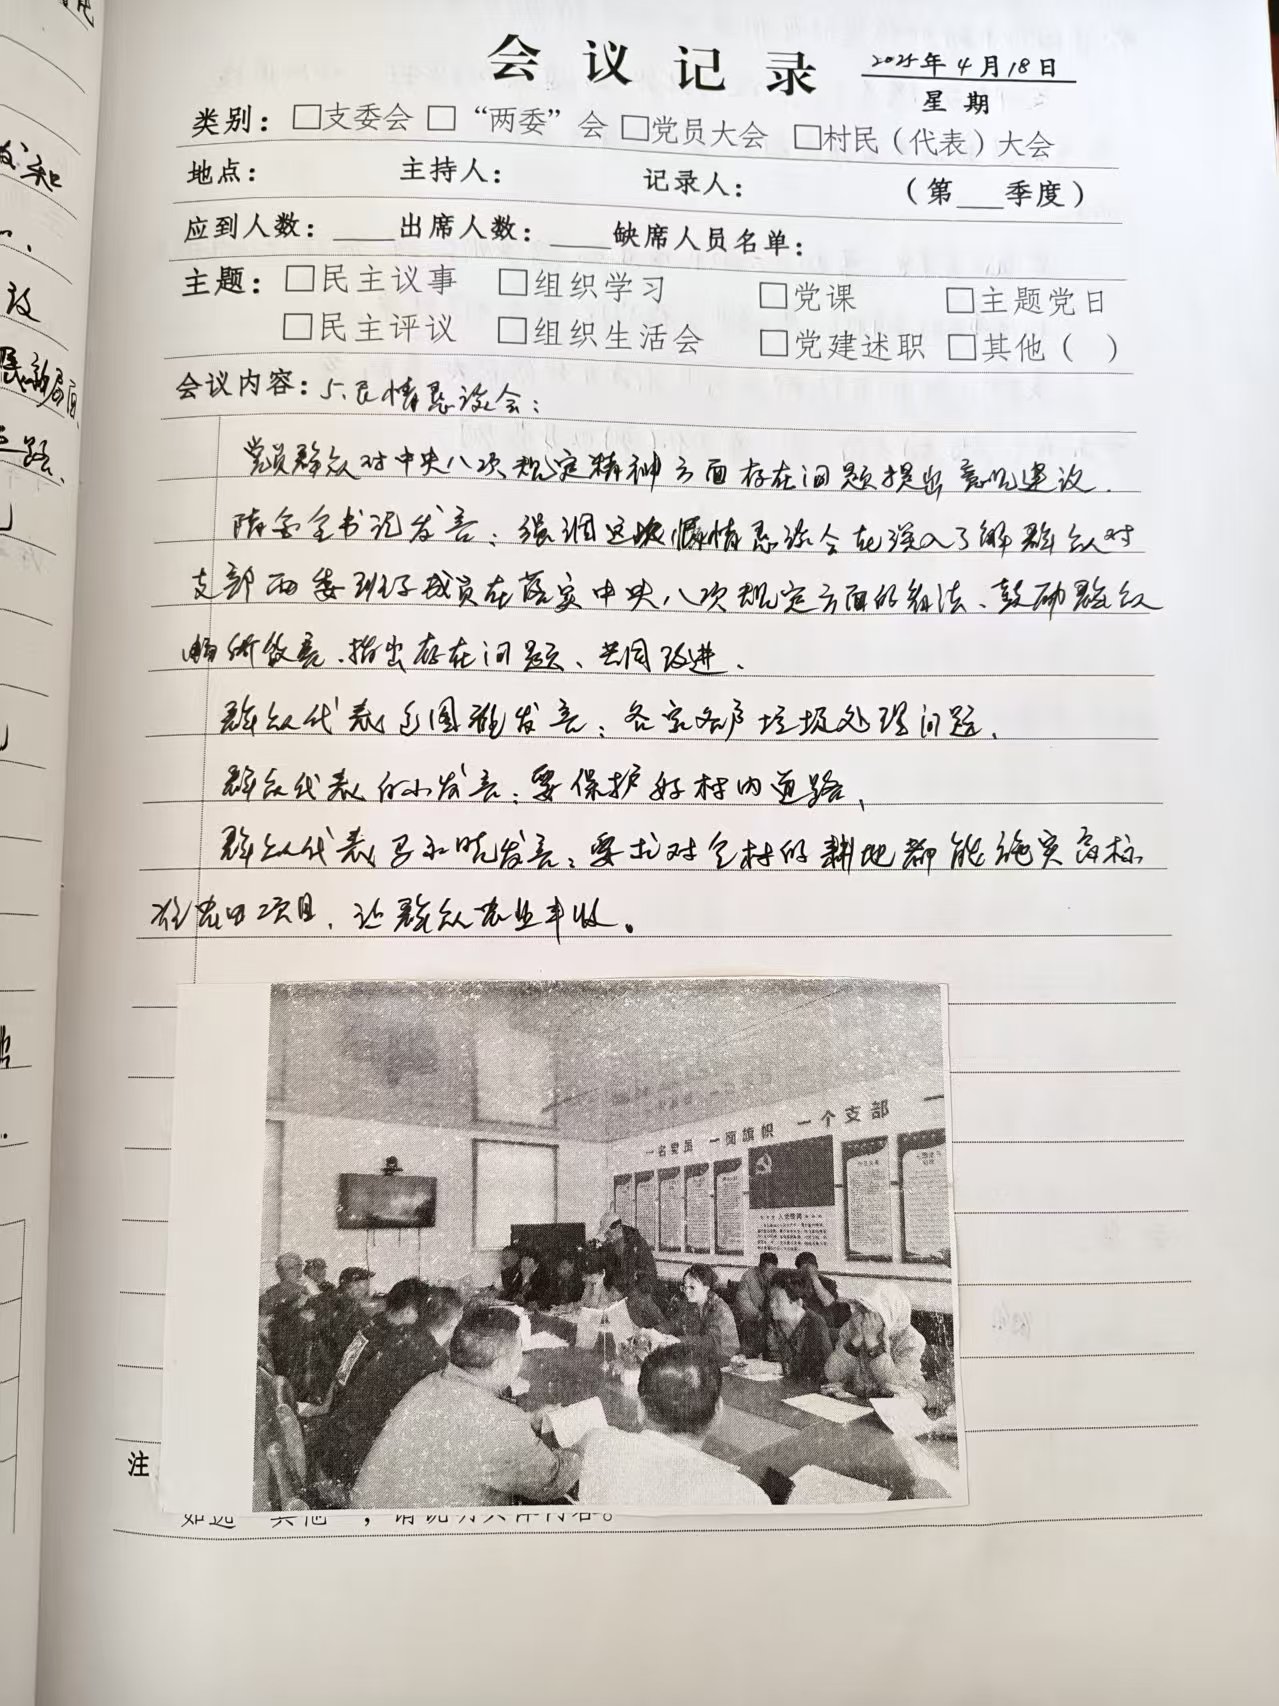 会议记录
2025年4月18日
星期
类别：□支委会 □“两委”会 □党员大会 □村民（代表）大会
地点： 主持人： 记录人： （第___季度）
应到人数：____出席人数：____缺席人员名单：
主题：□民主议事 □组织学习 □党课 □主题党日
□民主评议 □组织生活会 □党建述职 □其他（ ）
会议内容：5、民情恳谈会：
党员群众对中央八项规定精神方面存在问题提出意见建议.
书记发言：强调这次民情恳谈会在深入了解群众对
支部两委班子成员在落实中央八项规定方面的看法、鼓励群众
畅所欲言、指出存在问题、共同改进、
群众代表发言：各家各户垃圾处理问题、
群众代表发言：要保护好村内道路、
群众代表发言：要求对全村的耕地都能施实高标
准农田项目，让群众农业丰收。
一名党员 一面旗帜 一个支部
入党誓词
注
如选“其他”，请说明具体内容。